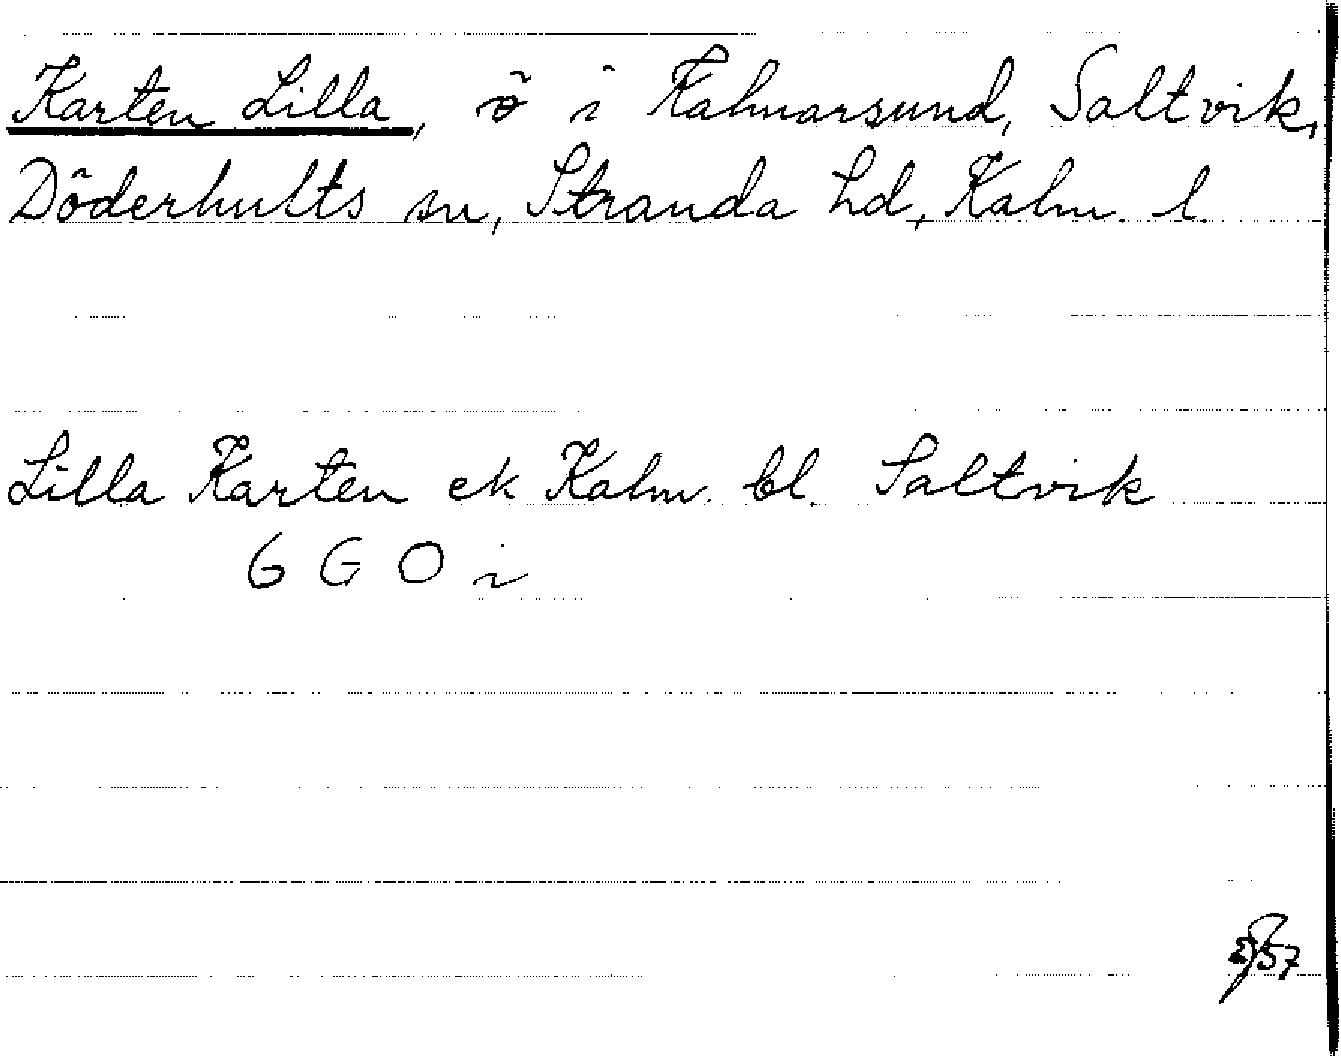 Karten Lilla, ö i Kalmarsund, Saltvik,
Döderhults sn, Stranda hd, Kalm. l.
Lilla Karten ek Kalm. bl. Saltvik
6 G O i
57